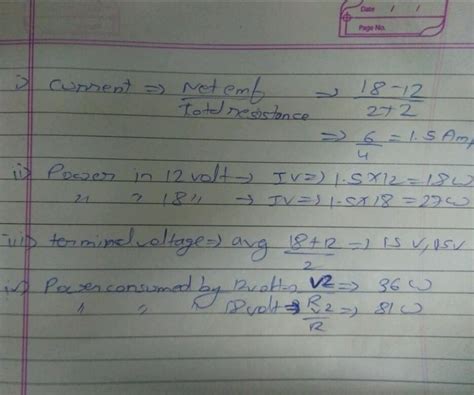 Date / /
Page No.
i) Current ⇒ Net emf / Total resistance ⇒ 18-12 / 2+2
⇒ 6/4 = 1.5 Amp
ii) Power in 12 volt → IV ⇒ 1.5×12 = 18W
" " 18 " → IV ⇒ 1.5×18 = 27W
iii) terminal voltage ⇒ avg 18+12 / 2 ⇒ 15 V, 15V
iv) Power consumed by 12 volt ⇒ V2 ⇒ 36 W
" " 18 volt ⇒ ⇒ 81 W